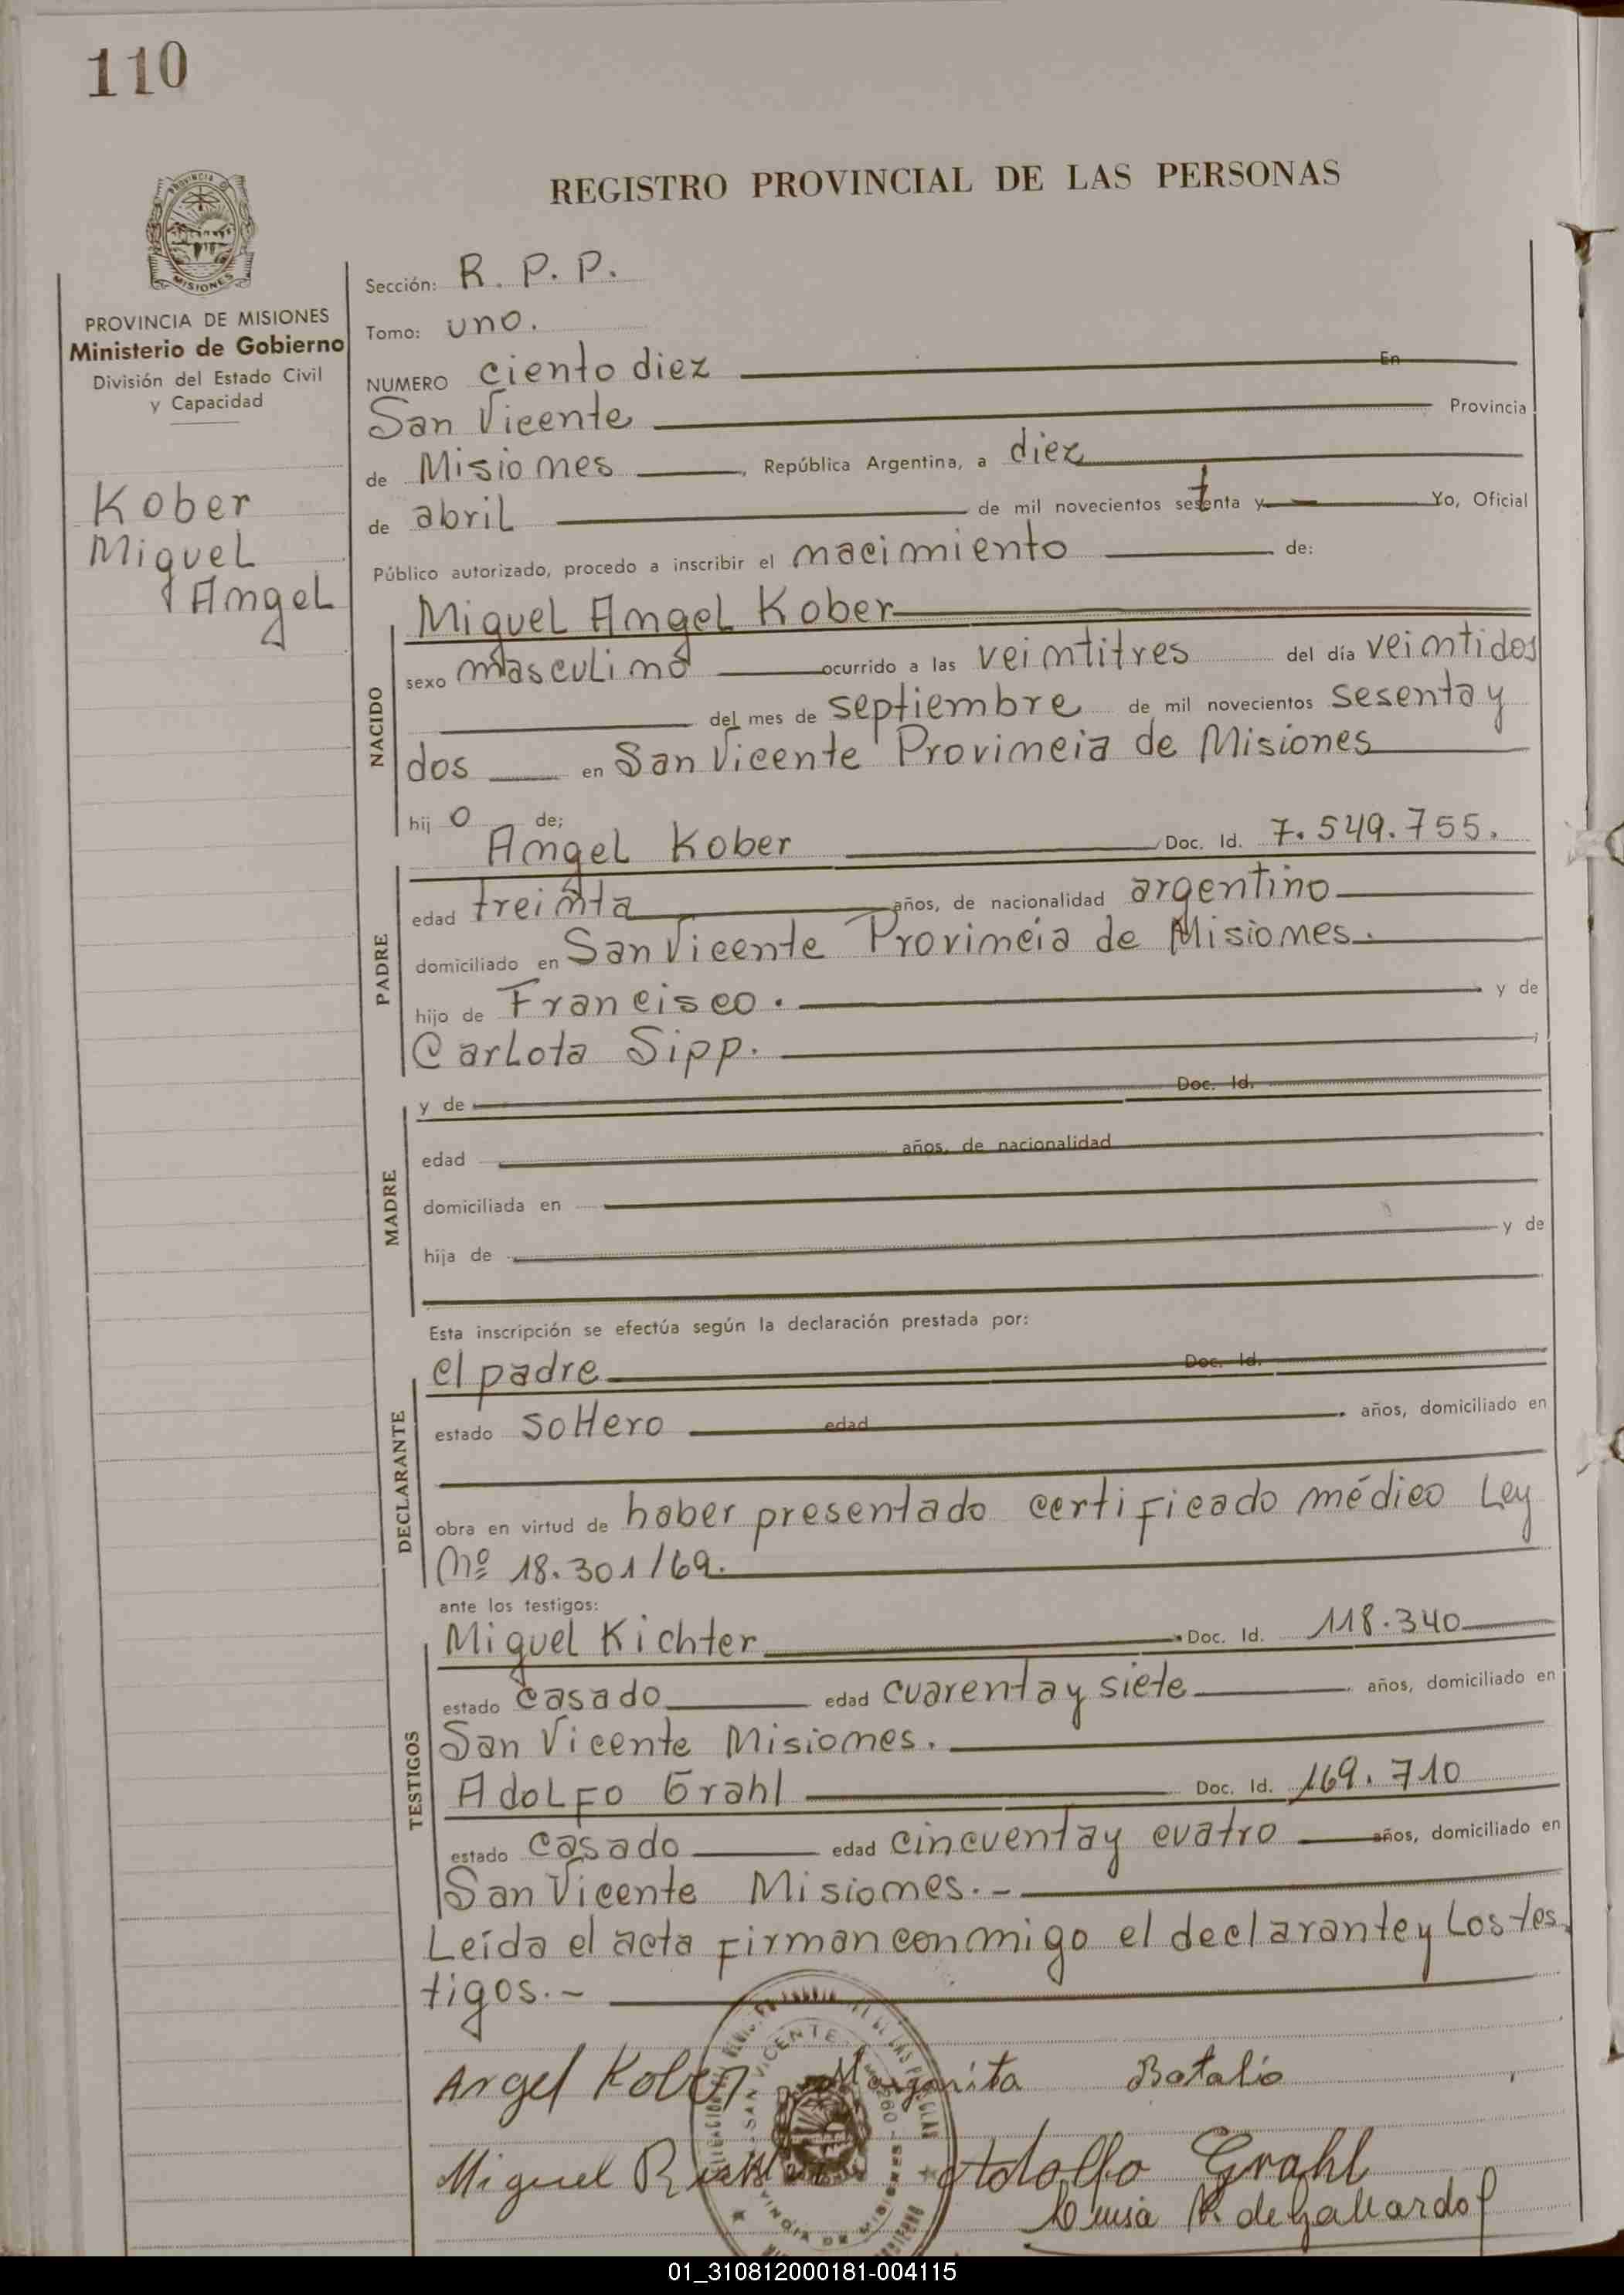 110
PROVINCIA DE
MISIONES
REGISTRO PROVINCIAL DE LAS PERSONAS
PROVINCIA DE MISIONES
Ministerio de Gobierno
División del Estado Civil
y Capacidad
Kober
Miguel
Angel
Sección: R. P. P.
Tomo: uno.
NUMERO ciento diez En
San Vicente Provincia
de Misiones , República Argentina, a diez
de abril de mil novecientos setenta y Yo, Oficial
Público autorizado, procedo a inscribir el nacimiento de:
NACIDO
Miguel Angel Kober
sexo masculino ocurrido a las veintitres del día veintidos
del mes de septiembre de mil novecientos sesenta y
dos en San Vicente Provincia de Misiones
hij o de;
PADRE
Angel Kober Doc. Id. 7.549.755.
edad treinta años, de nacionalidad argentino
domiciliado en San Vicente Provincia de Misiones.
hijo de Francisco. y de
Carlota Sipp. ;
MADRE
y de Doc. Id.
edad años, de nacionalidad
domiciliada en
hija de y de
Esta inscripción se efectúa según la declaración prestada por:
DECLARANTE
el padre Doc. Id.
estado soltero edad años, domiciliado en
obra en virtud de haber presentado certificado médico Ley
Nº 18.301/69.
ante los testigos:
TESTIGOS
Miguel Richter Doc. Id. 118.340
estado casado edad cuarenta y siete años, domiciliado en
San Vicente Misiones.
Adolfo Grahl Doc. Id. 169.710
estado casado edad cincuenta y cuatro años, domiciliado en
San Vicente Misiones.-
Leída el acta firman conmigo el declarante y los tes
tigos.-
Angel Kober Margarita Batalio
Miguel Richter Adolfo Grahl
Luisa R. de Gallardo
SAN VICENTE
PROVINCIA DE MISIONES
01_310812000181-004115